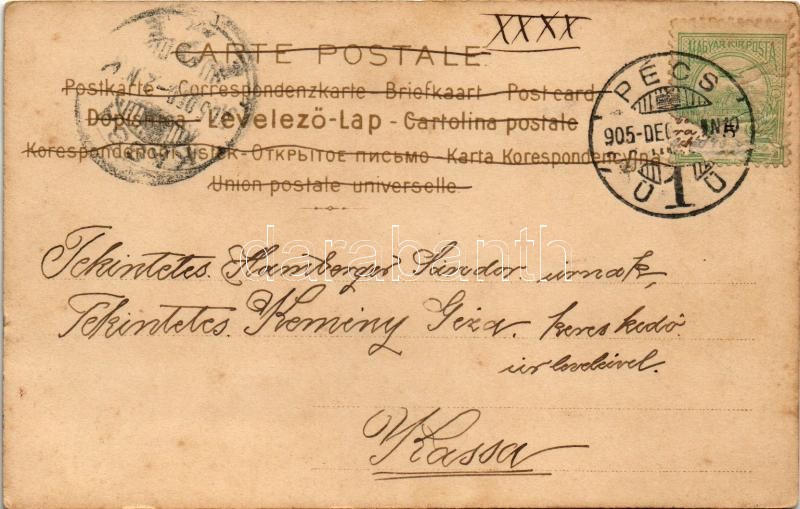 XXXX
CARTE POSTALE
Postkarte - Correspondenzkarte - Briefkaart - Post card
Dopisnica - Levelező-Lap - Cartolina postale
Korespondenční lístek - Открытое письмо - Karta Korespondencyjna
Union postale universelle
MAGYAR KIR. POSTA
PÉCS
905-DEC
Tekintetes Hamberger Sándor urnak,
Tekintetes Kemény Géza kereskedő
úr levelével.
Kassa
darabanth